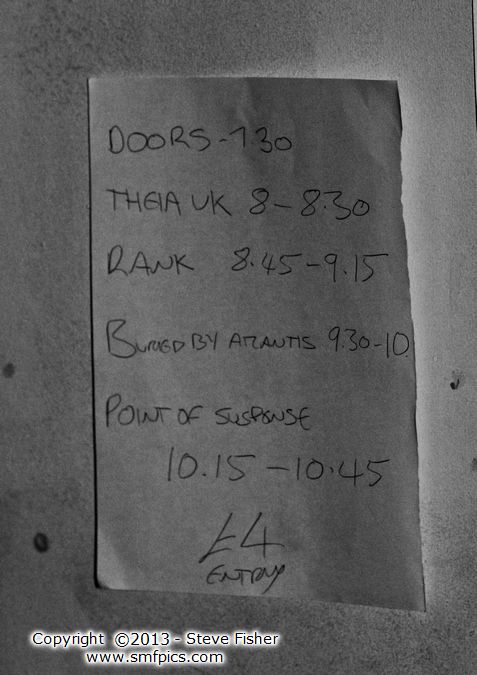 DOORS - 7.30
THEIA UK 8 - 8.30
RANK 8.45 - 9.15
BURIED BY ATLANTIS 9.30 - 10
POINT OF SUSPENSE
10.15 - 10.45
£4
ENTRY
Copyright ©2013 - Steve Fisher
www.smfpics.com